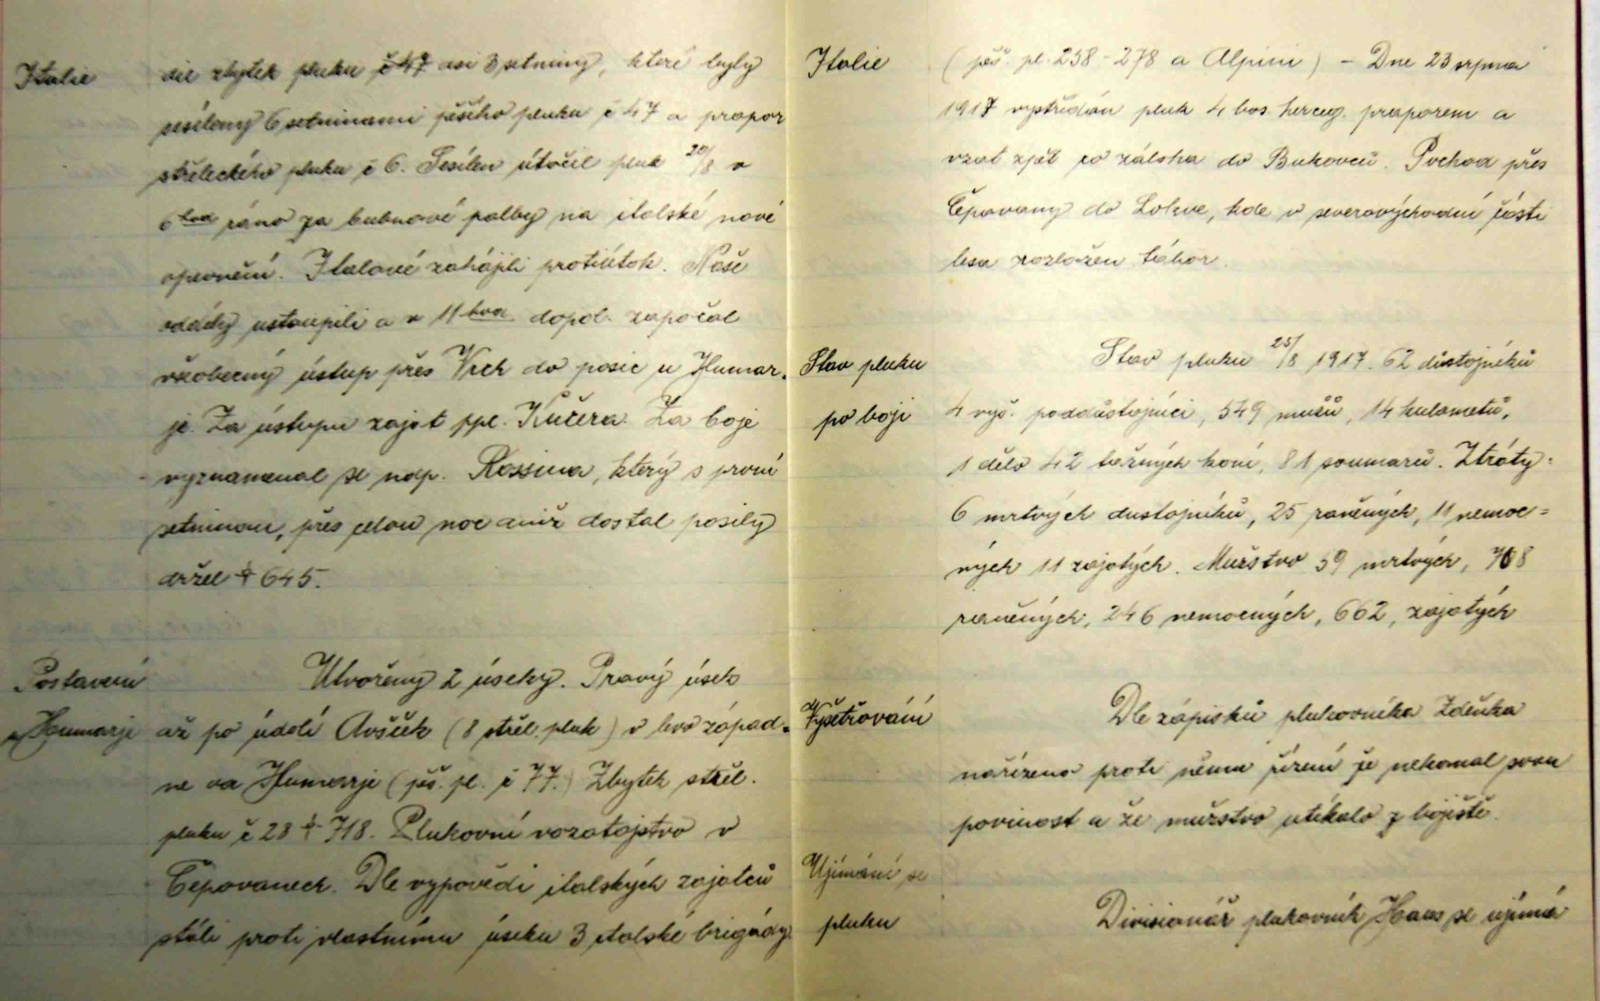 Italie
die zbytek pluku č 47 asi 3 setniny, které byly
sesíleny 6 setninami pěšího pluku č 47 a prapor
střeleckého pluku č 6. Sesílen útočil pluk 20/8 v
6 hod ráno za bubnové palby na italské nové
opevnění. Italové zahájili protiútok. Naše
oddíly ustoupili a v 11 hod dopol. započal
všeobecný ústup přes Vrch do posic u Humar-
je. Za ústupu zajat ppl. Kučera. Za boje
vyznamenal se ndp. Rossina, který s první
setninou, přes celou noc aniž dostal posily
držel 645.
Postavení
u Humarji
Utvořeny 2 úseky. Pravý úsek
až po údolí Avšček (8 střel. pluk) v levo západ-
ne na Humarje (pěš. pl. č 77.) Zbytek střel.
pluku č 28 718. Plukovní vozatajstvo v
Čepovanech. Dle vypovědi italských zajatců
stáli proti vlastnímu úseku 3 italské brigády
Italie
(pěš. pl. 258 - 278 a Alpini) - Dne 23 srpna
1917 vystřídán pluk 4 bos. herceg. praporem a
vzat zpět co záloha do Bukovců. Pochod přes
Čepovany do Lokve, kde v severovýchodní části
lesa rozložen tábor.
Stav pluku
po boji
Stav pluku 25/8 1917. 62 důstojníků
4 vyš. poddůstojníci, 549 mužů, 14 kulometů,
1 dělo 42 tažných koní, 81 soumarů. Ztráty:
6 mrtvých dustojníků, 25 raněných, 11 nemoc=
ných 11 zajatých. Mužstvo 59 mrtvých, 708
raněných, 246 nemocných, 662, zajatých
Vyšetřování
Dle zápisků plukovníka Zdeňka
nařízeno proti němu řízení že nekonal svou
povinost a že mužstvo utíkalo z bojiště.
Ujímání se
pluku
Divisionář plukovník Haas se ujímá